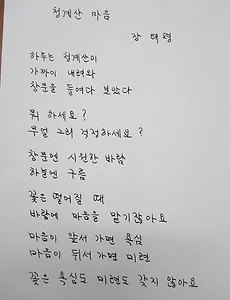 청계산 마음
장 택 령
하루는 청계산이
가까이 내려와
창문을 들여다 보았다
뭐 하세요?
무얼 그리 걱정하세요?
창문엔 시원한 바람
하분엔 구름
꽃은 떨어질 때
바람에 마음을 맡기잖아요
마음이 앞서 가면 욕심
마음이 뒤서 가면 미련
꽃은 욕심도 미련도 갖지 않아요